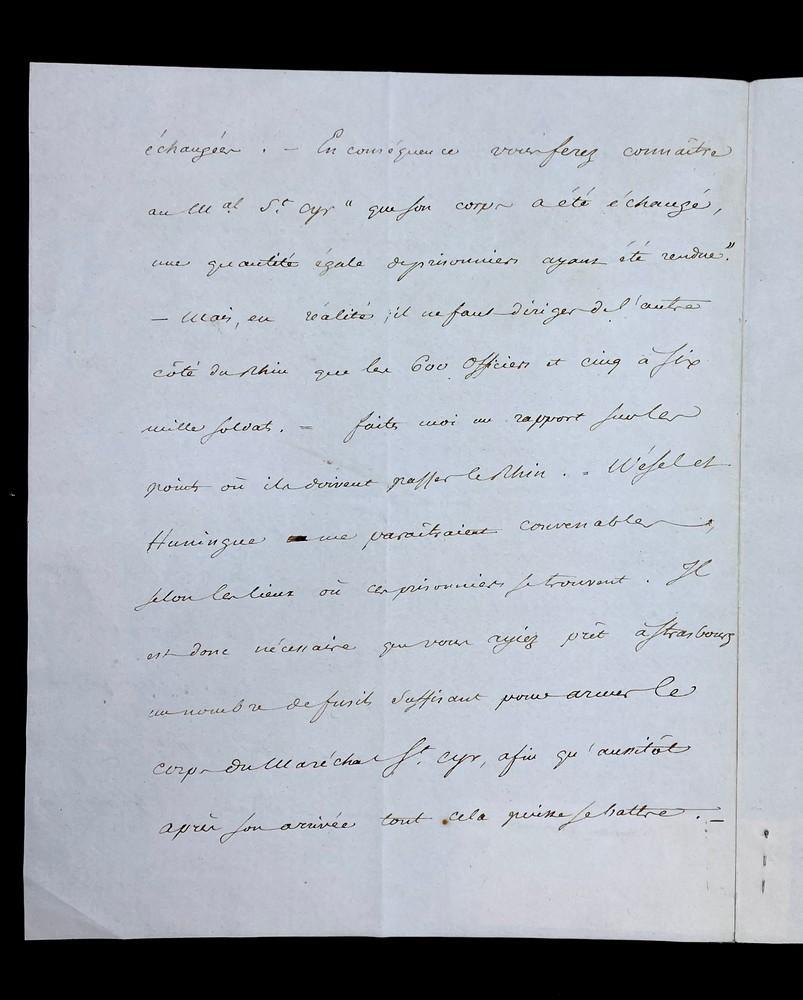 échangées. — En conséquence vous ferez connaître
au Mal St. Cyr " que son corps a été échangé,
une quantité égale de prisonniers ayant été rendue."
— Mais, en réalité, il ne faut diriger de l'autre
côté du Rhin que les 600 Officiers et cinq à six
mille soldats. — faites moi un rapport sur les
points où ils doivent passer le Rhin. — Wésel et
Huningue me paraîtraient convenables,
selon les lieux où ces prisonniers se trouvent. Il
est donc nécessaire que vous ayiez prêt à Strasbourg
un nombre de fusils suffisant pour armer le
corps du Maréchal St. Cyr, afin qu'aussitôt
après son arrivée tout cela puisse se battre. —